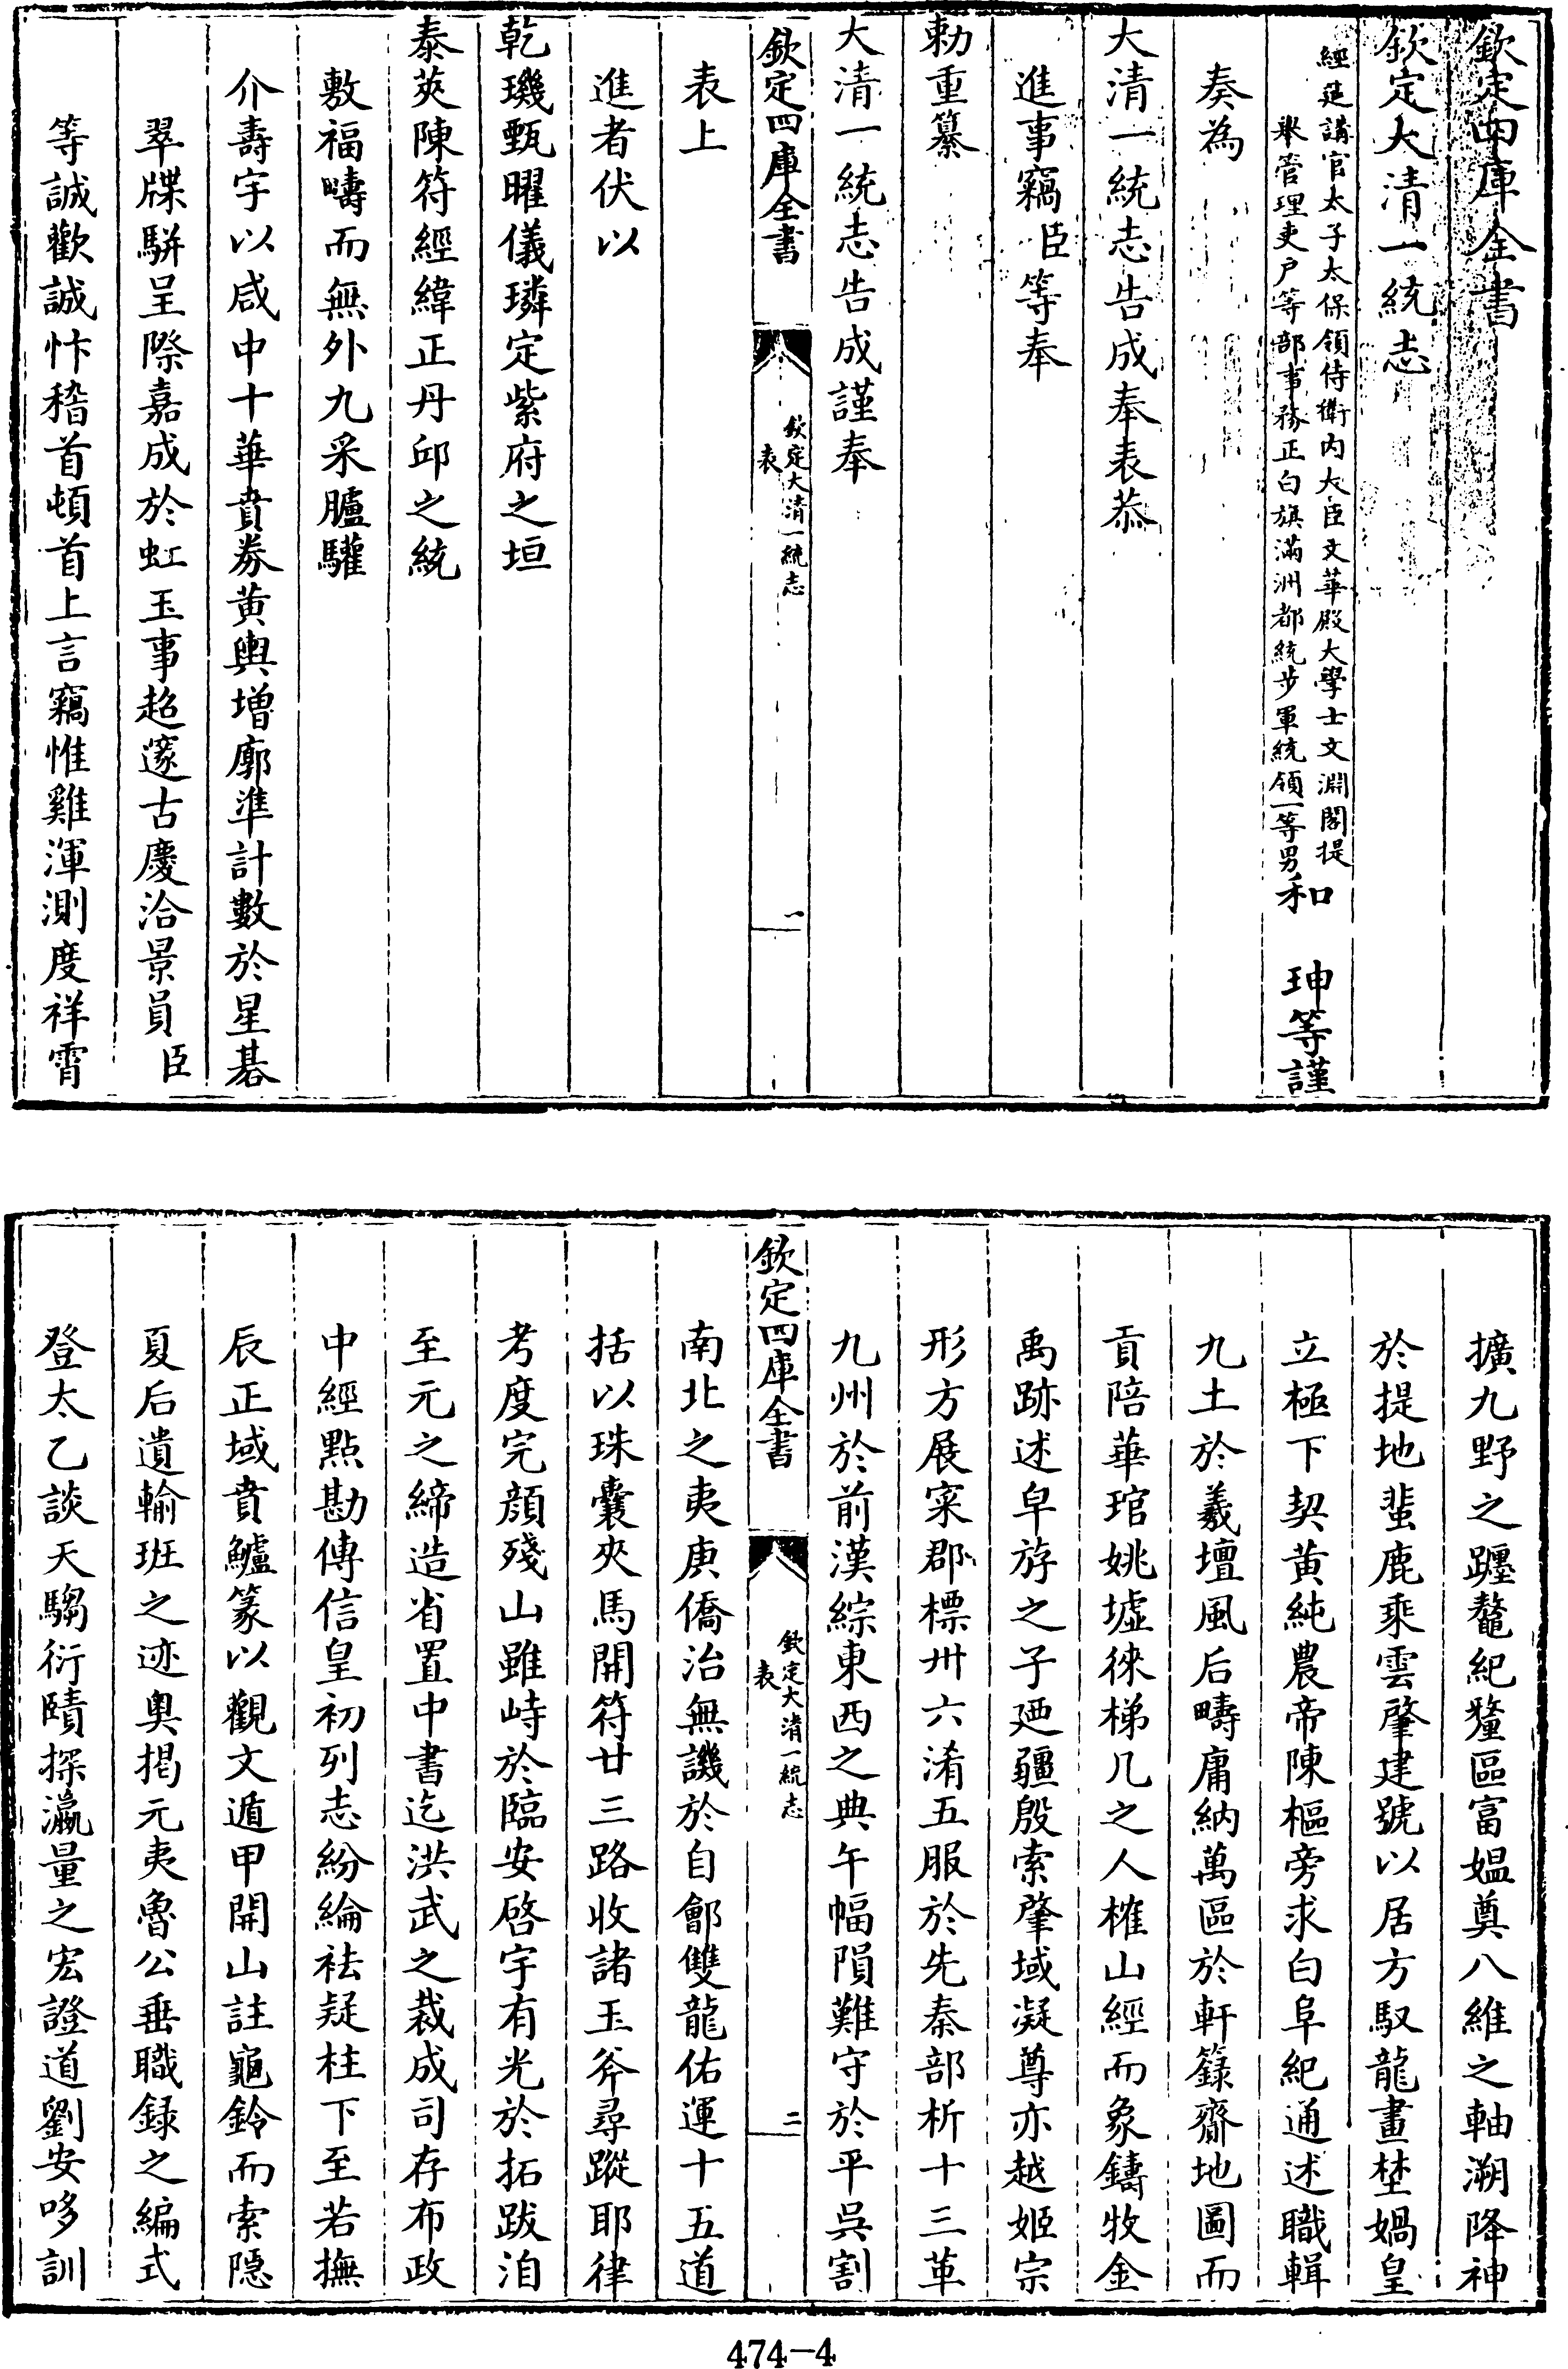 欽定四庫全書
欽定大清一統志
經筵講官太子太保領侍衛內大臣文華殿大學士文淵閣提
舉管理吏戶等部事務正白旗滿洲都統步軍統領一等男和珅等謹
奏為
大清一統志告成奉表恭
進事竊臣等奉
勅重纂
大清一統志告成謹奉
欽定四庫全書
欽定大清一統志
表
一
表上
進者伏以
乾璣甄曜儀璘定紫府之垣
泰莢陳符經緯正丹邱之統
敷福疇而無外九采臚驩
介壽宇以咸中十華賁劵黃輿增廓準計數於星碁
翠牒駢呈際嘉成於虹玉事超邃古慶洽景員臣
等誠歡誠忭稽首頓首上言竊惟雞渾測度祥霄
擴九野之躔鼇紀釐區富媼奠八維之軸溯降神
於提地蜚鹿乘雲肇建號以居方馭龍畫埜媧皇
立極下契黃純農帝陳樞旁求白阜紀通述職輯
九土於羲壇風后疇庸納萬區於軒籙齎地圖而
貢陪華琯姚墟徠梯几之人榷山經而象鑄牧金
禹跡述皁斿之子廼疆殷索肇域凝尊亦越姬宗
形方展寀郡標卅六淆五服於先秦部析十三革
九州於前漢綜東西之典午幅隕難守於平吳割
欽定四庫全書
欽定大清一統志
表
二
南北之夷庚僑治無譏於自鄶雙龍佑運十五道
括以珠囊夾馬開符廿三路收諸玉斧尋蹤耶律
考度完顏殘山雖峙於臨安啓宇有光於拓跋洎
至元之締造省置中書迄洪武之裁成司存布政
中經點勘傳信皇初列志紛綸袪疑柱下至若撫
辰正域賁鱸篆以觀文遁甲開山註龜鈴而索隱
夏后遺輸班之迹奧掲元夷魯公垂職録之編式
登太乙談天騶衍賾探瀛量之宏證道劉安哆訓
474-4